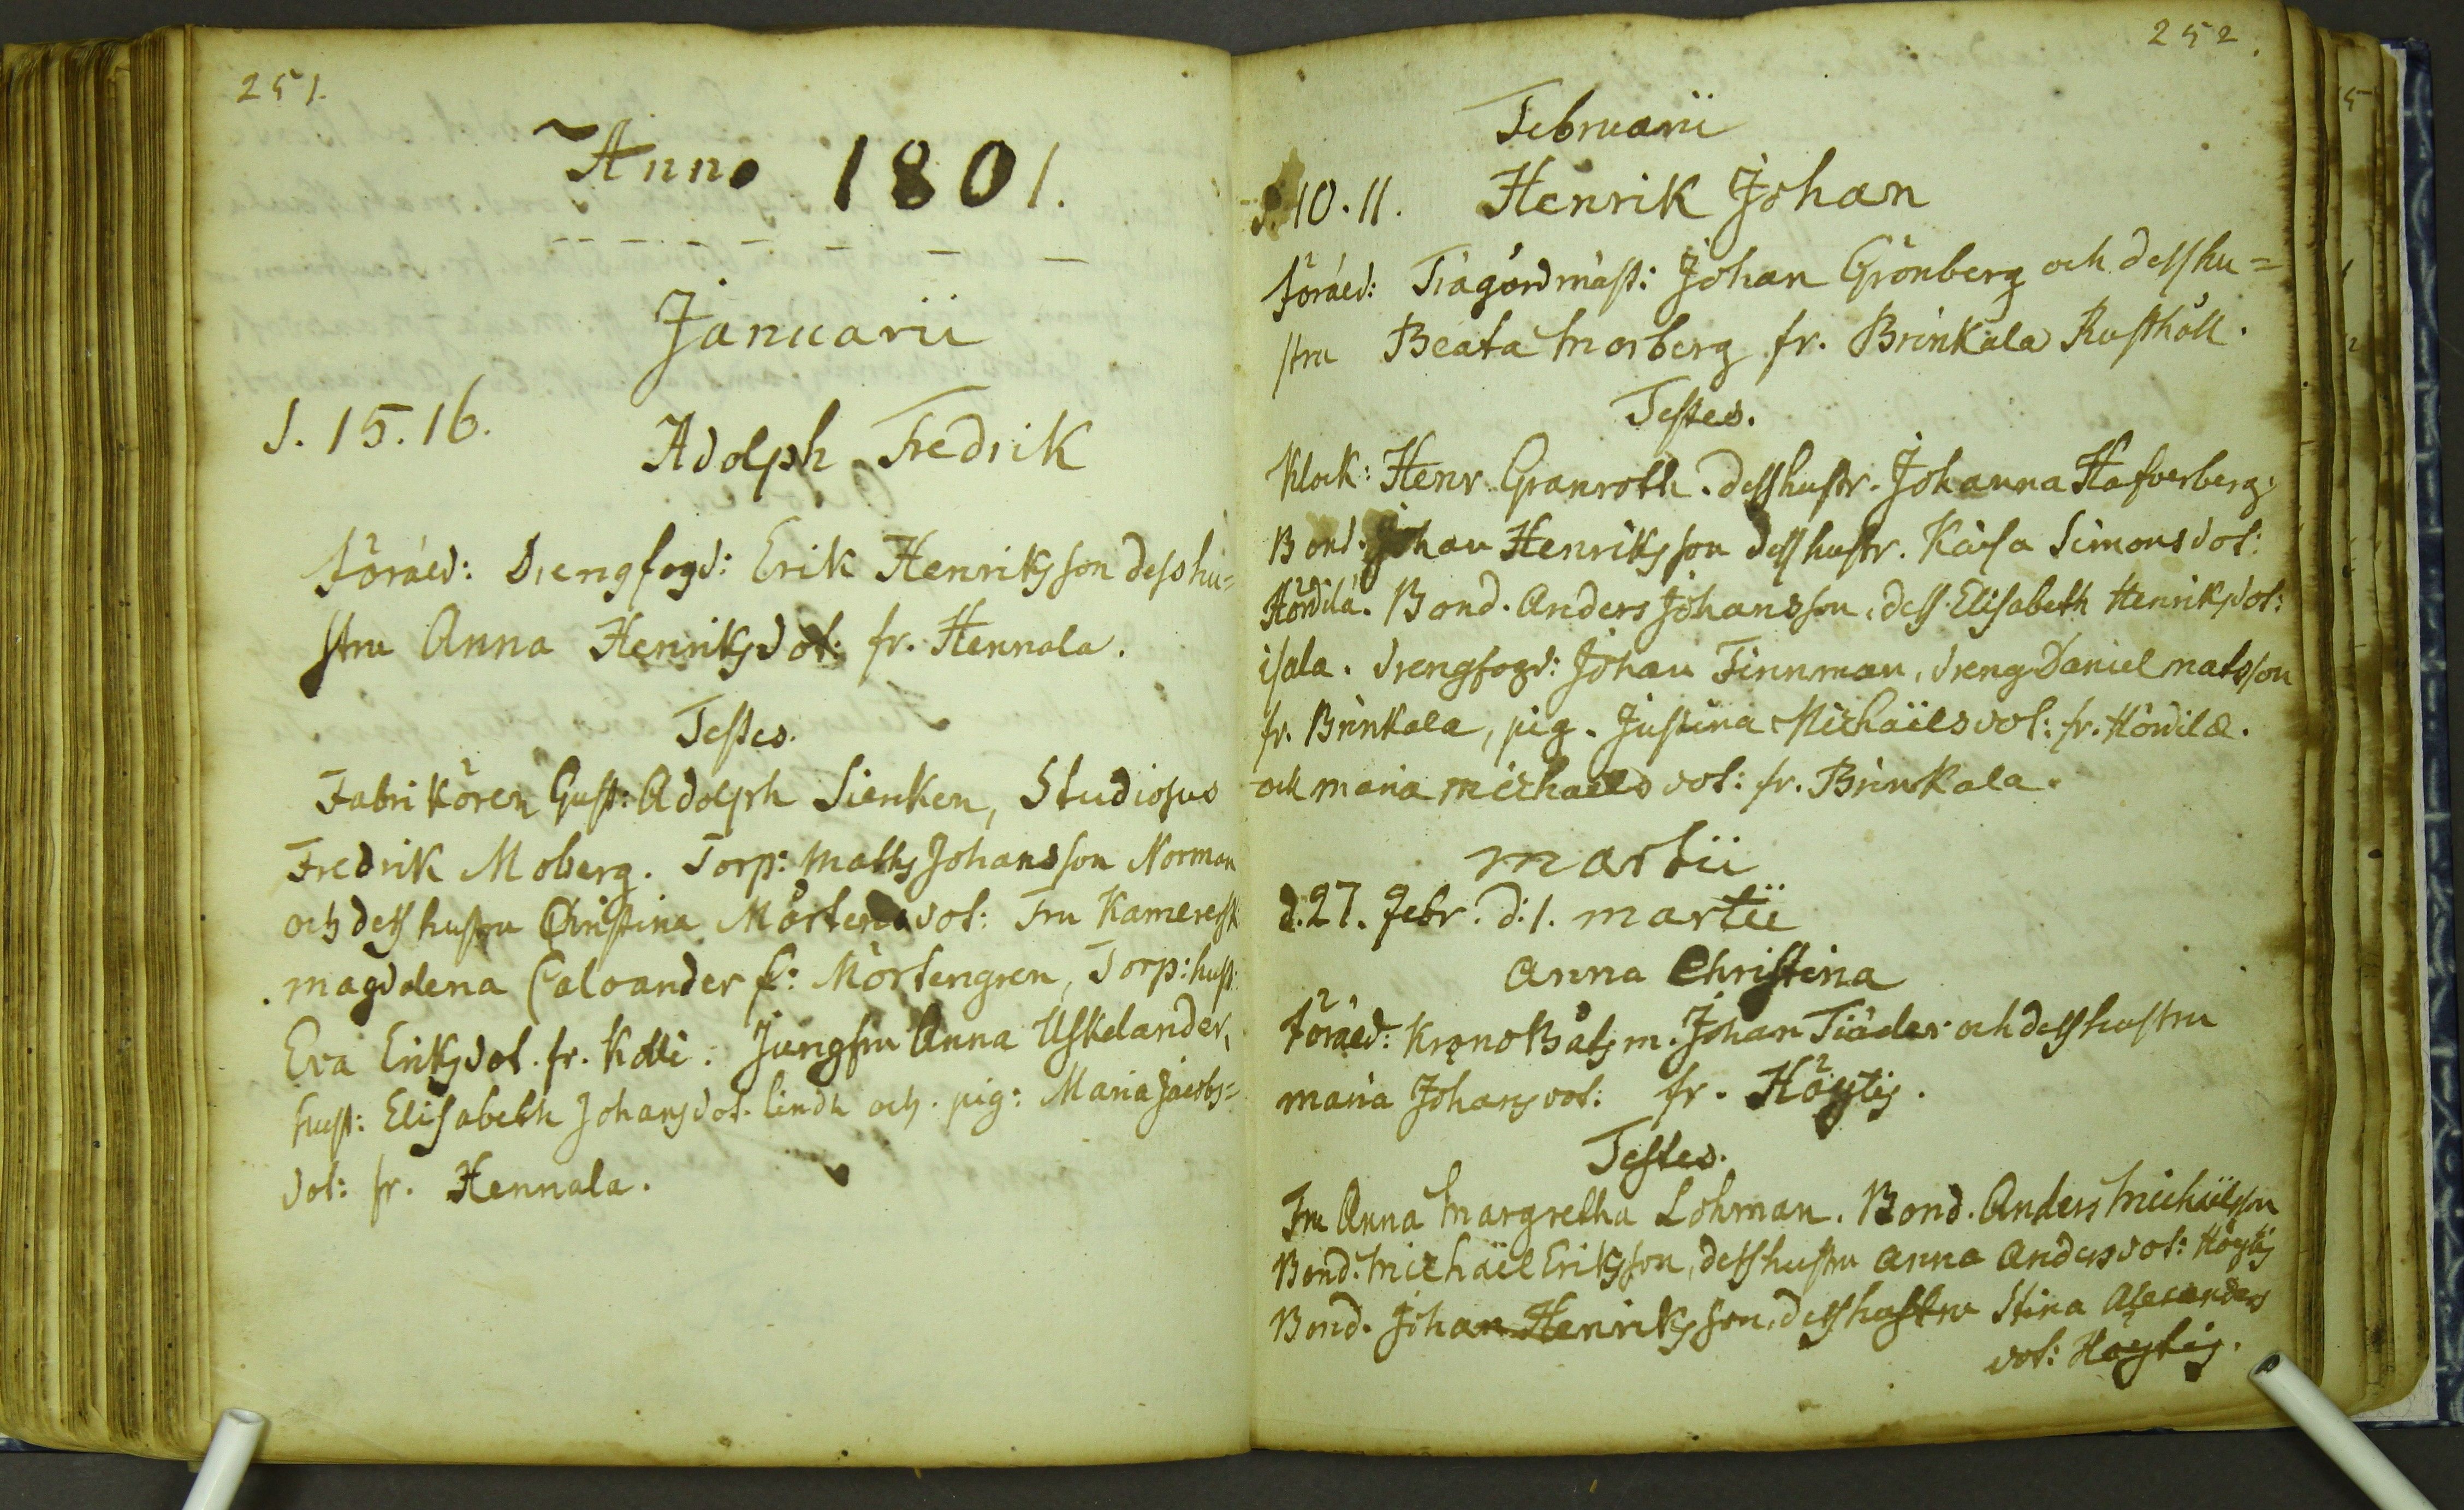 251.
Anno 1801.
Januarii
d. 15. 16. Adolph Fredrik
Föräld: Drengfogd: Erik Henriksson dess hu=
stru Anna Henriksdot: fr. Hennala.
Testes.
Fabrikören Gust: Adolph Sienken, Studiosus
Fredrik Moberg. Torp: Matts Johansson Norman
och dess hustru Christina Mårtensdot: Fru Kameresk
Magdalena Caloander f: Mårtengren, Torp: hust:
Eva Eriksdot. fr. Kolli. Jungfru Anna Uskelander,
hust: Elisabeth Johansdot. Lindh och. pig: Maria Jacobs=
dot: fr. Hennala.
252.
Februarii
d. 10. 11. Henrik Johan
Föräld: Trägårdmäst: Johan Grönberg och dess hu=
stru Beata Morberg fr. Brinkala Rusthåll.
Testes.
Klock: Henr. Granroth. dess hustr. Johanna Hafverberg.
Bond: Johan Henriksson dess hustr. Kaisa Simonsdot:
Hördilä. Bond. Anders Johansson, dess Elisabeth Henriksdot:
isala. drengfogd: Johan Finnman, dreng Daniel Matsson
fr. Brinkala, pig. Justina Michaëlsdot: fr. Hördilä.
och Maria Michaels dot: fr. Brinkala.
Martii
d. 27. Febr. d: 1. Martii
Anna Christina
Föräld: Krono Båtsm. Johan Tiäder och dess hustru
Maria Johansdot: fr. Höytis.
Testes.
Fru Anna Margretha Lohman. Bond. Anders Michaëlsson
Bond. Michaël Eriksson, dess hustru Anna Andersdot: Höytis
Bond. Johan Henriksson, dess hustru Stina Alexanders
dot: Höytis.